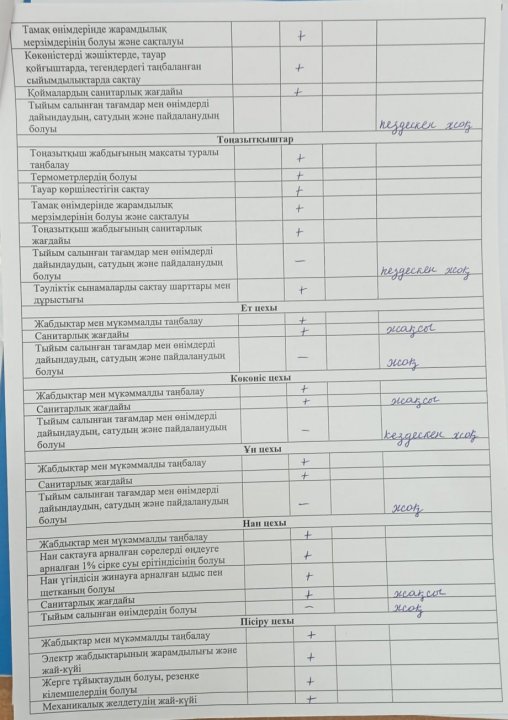 Тамақ өнімдерінде жарамдылық
мерзімдерінің болуы және сақталуы +
Көкөністерді жәшіктерде, тауар
қойғыштарда, тегендердегі таңбаланған
сыйымдылықтарда сақтау +
Қоймалардың санитарлық жағдайы +
Тыйым салынған тағамдар мен өнімдерді
дайындаудың, сатудың және пайдаланудың
болуы кездескен жоқ
Тоңазытқыштар
Тоңазытқыш жабдығының мақсаты туралы
таңбалау +
Термометрлердің болуы +
Тауар көршілестігін сақтау +
Тамақ өнімдерінде жарамдылық
мерзімдерінің болуы және сақталуы +
Тоңазытқыш жабдығының санитарлық
жағдайы +
Тыйым салынған тағамдар мен өнімдерді
дайындаудың, сатудың және пайдаланудың
болуы – кездескен жоқ
Тәуліктік сынамаларды сақтау шарттары мен
дұрыстығы +
Ет цехы
Жабдықтар мен мүкәммалды таңбалау +
Санитарлық жағдайы + жақсы
Тыйым салынған тағамдар мен өнімдерді
дайындаудың, сатудың және пайдаланудың
болуы – жоқ
Көкөніс цехы
Жабдықтар мен мүкәммалды таңбалау +
Санитарлық жағдайы + жақсы
Тыйым салынған тағамдар мен өнімдерді
дайындаудың, сатудың және пайдаланудың
болуы – кездескен жоқ
Ұн цехы
Жабдықтар мен мүкәммалды таңбалау +
Санитарлық жағдайы +
Тыйым салынған тағамдар мен өнімдерді
дайындаудың, сатудың және пайдаланудың
болуы – жоқ
Нан цехы
Жабдықтар мен мүкәммалды таңбалау +
Нан сақтауға арналған сөрелерді өңдеуге
арналған 1% сірке суы ерітіндісінің болуы +
Нан үгіндісін жинауға арналған ыдыс пен
щетканың болуы +
Санитарлық жағдайы + жақсы
Тыйым салынған өнімдердің болуы – жоқ
Пісіру цехы
Жабдықтар мен мүкәммалды таңбалау +
Электр жабдықтарының жарамдылығы және
жай-күйі +
Жерге тұйықтаудың болуы, резеңке
кілемшелердің болуы +
Механикалық желдетудің жай-күйі +